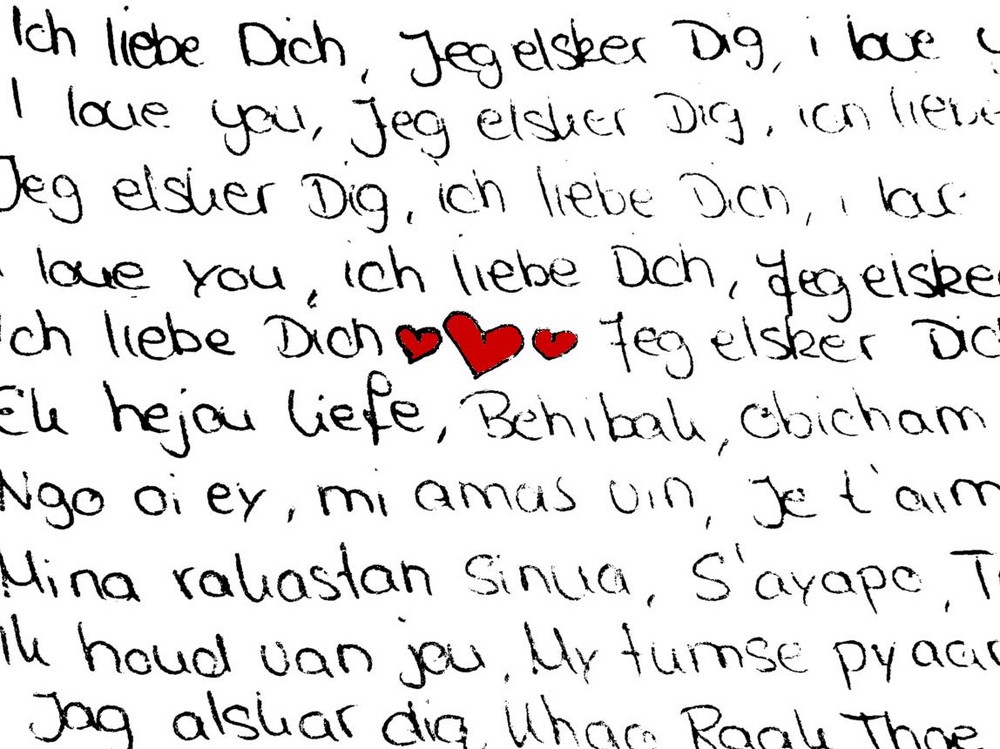 Ich liebe Dich, Jeg elsker Dig, i love
I love you, Jeg elsker Dig, ich liebe
Jeg elsker Dig, ich liebe Dich, i
love you, ich liebe Dch, Jeg elsker
ich liebe Dich Jeg elsker Dich
Ek hejou liefe, Behibak, Obicham
Ngo oi ey, mi amas vin, Je t'aim
Mina rakastan Sinua, S'ayapo,
Ik houd van jou, My tumse pyaar
Jag alskar dig, Khao Raak Thoe